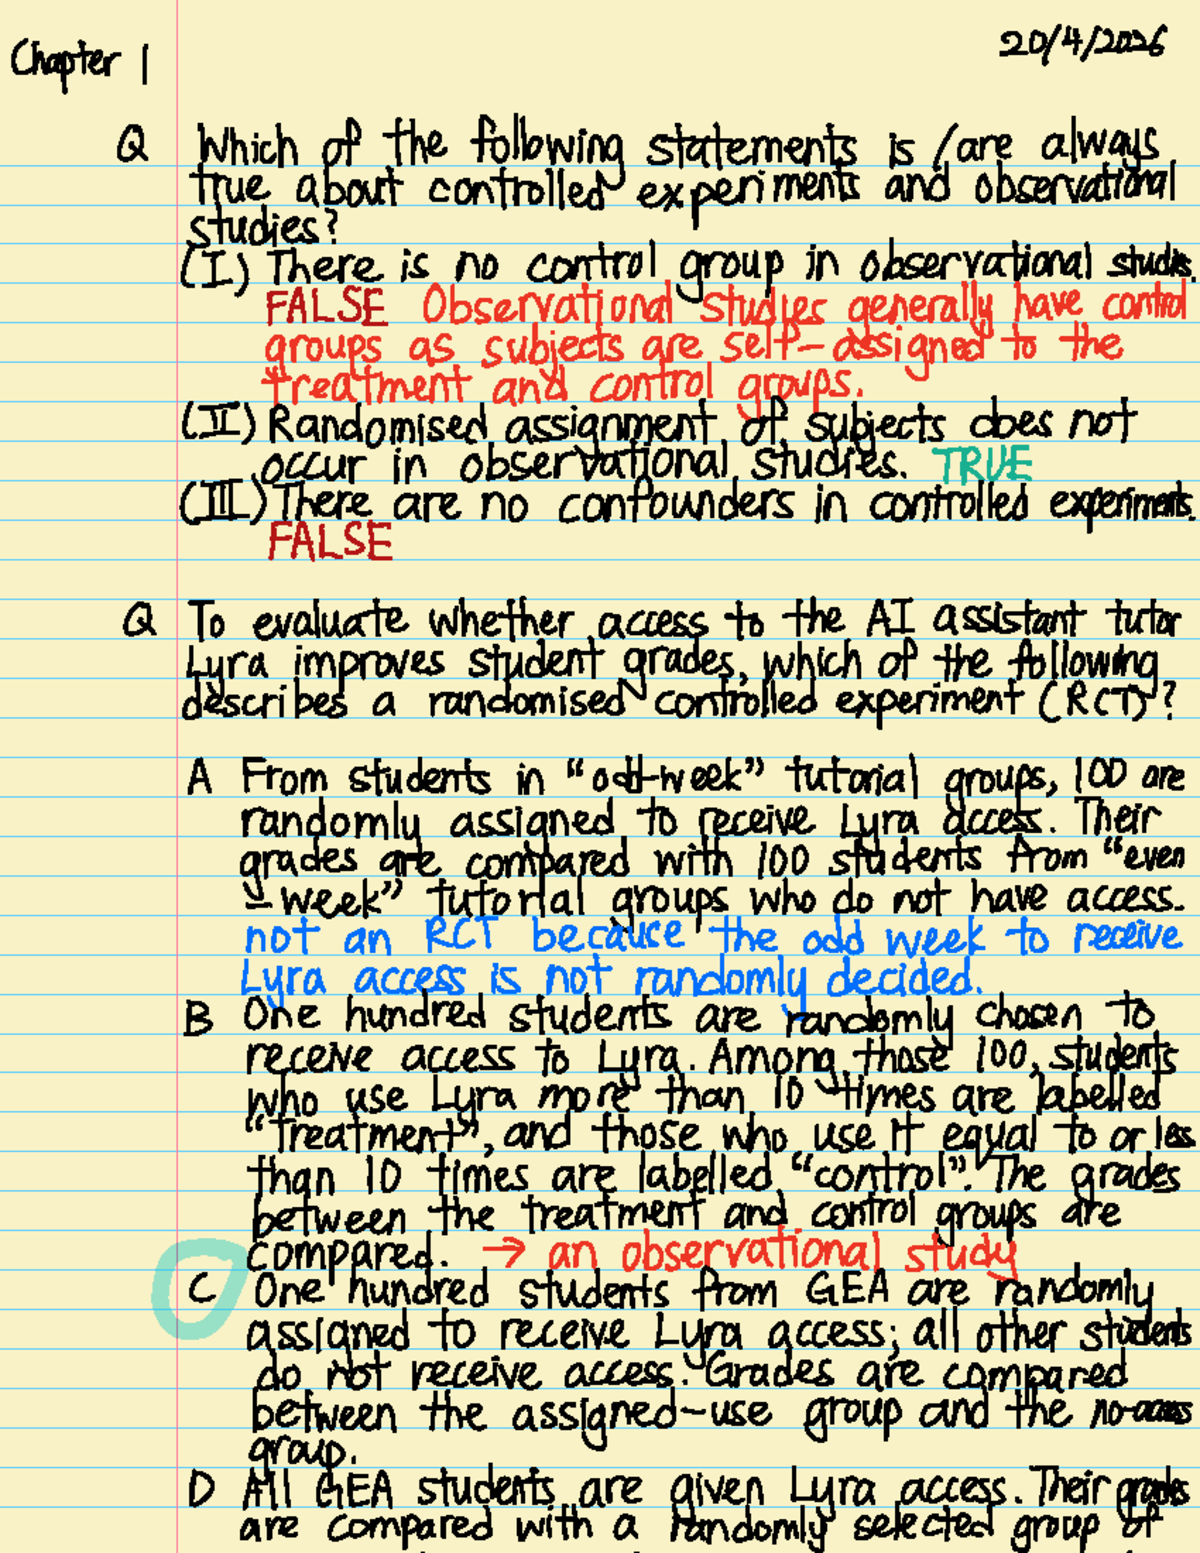 Chapter 1
20/4/2026
Q Which of the following statements is/are always
true about controlled experiments and observational
studies?
(I) There is no control group in observational studies.
FALSE Observational studies generally have control
groups as subjects are self-assigned to the
treatment and control groups.
(II) Randomised assignment of subjects does not
occur in observational studies. TRUE
(III) There are no confounders in controlled experiments.
FALSE
Q To evaluate whether access to the AI assistant tutor
Lyra improves student grades, which of the following
describes a randomised controlled experiment (RCT)?
A From students in “odd-week” tutorial groups, 100 are
randomly assigned to receive Lyra access. Their
grades are compared with 100 students from “even
-week” tutorial groups who do not have access.
not an RCT because the odd week to receive
Lyra access is not randomly decided.
B One hundred students are randomly chosen to
receive access to Lyra. Among those 100, students
who use Lyra more than 10 times are labelled
“treatment”, and those who use it equal to or less
than 10 times are labelled “control”. The grades
between the treatment and control groups are
compared. → an observational study
C One hundred students from GEA are randomly
assigned to receive Lyra access; all other students
do not receive access. Grades are compared
between the assigned-use group and the no-access
group.
D All GEA students are given Lyra access. Their grades
are compared with a randomly selected group of